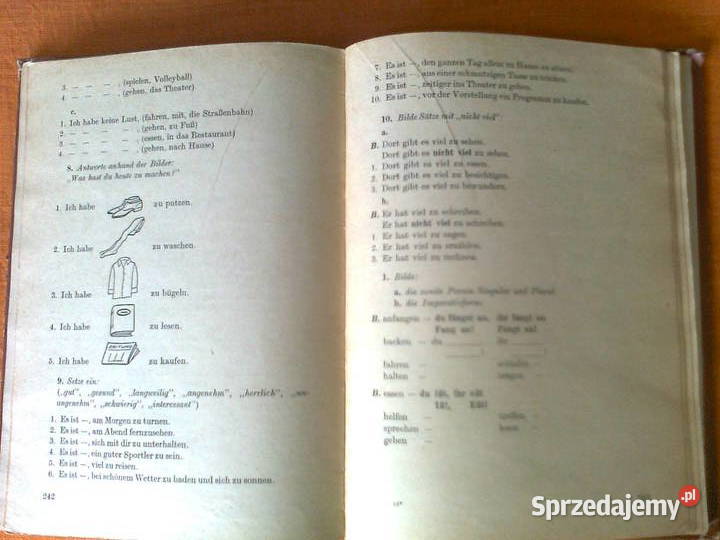 3. — — — , (spielen, Volleyball)
4 — — — , (gehen, das Theater)
c.
1. Ich habe keine Lust, (fahren, mit, die Straßenbahn)
2. — — — — , (gehen, zu Fuß)
3 — — — — , (essen, in das Restaurant)
4 — — — — , (gehen, nach Hause)
8. Antworte anhand der Bilder:
„Was hast du heute zu machen?"
1. Ich habe zu putzen.
2. Ich habe zu waschen.
3. Ich habe zu bügeln.
4. Ich habe zu lesen.
ZEITUNG
5. Ich habe zu kaufen.
9. Setze ein:
(„gut", „gesund", „langweilig", „angenehm", „herrlich", „un-
angenehm", „schwierig", „interessant")
1. Es ist —, am Morgen zu turnen.
2. Es ist —, am Abend fernzusehen.
3. Es ist —, sich mit dir zu unterhalten.
4. Es ist —, ein guter Sportler zu sein.
5. Es ist —, viel zu reisen.
6. Es ist —, bei schönem Wetter zu baden und sich zu sonnen.
242
7. Es ist —, den ganzen Tag allein zu Hause zu sitzen.
8. Es ist —, aus einer schmutzigen Tasse zu trinken.
9. Es ist —, zeitiger ins Theater zu gehen.
10. Es ist —, vor der Vorstellung ein Programm zu kaufen.
10. Bilde Sätze mit „nicht viel"
a.
B. Dort gibt es viel zu sehen.
Dort gibt es nicht viel zu sehen.
1. Dort gibt es viel zu essen.
2. Dort gibt es viel zu besichtigen.
3. Dort gibt es viel zu bewundern.
b.
B. Er hat viel zu schreiben.
Er hat nicht viel zu schreiben.
1. Er hat viel zu sagen.
2. Er hat viel zu erzählen.
3. Er hat viel zu
1. Bilde:
a. die zweite Person Singular und Plural.
b. die Imperativform.
B. anfangen — du fängst an, ihr fangt an
Fang an! Fangt an!
backen — du
fahren —
halten —
B. essen — du ißt, ihr eßt
Iß! Eßt!
helfen —
sprechen — lesen
geben —
Sprzedajemy.pl